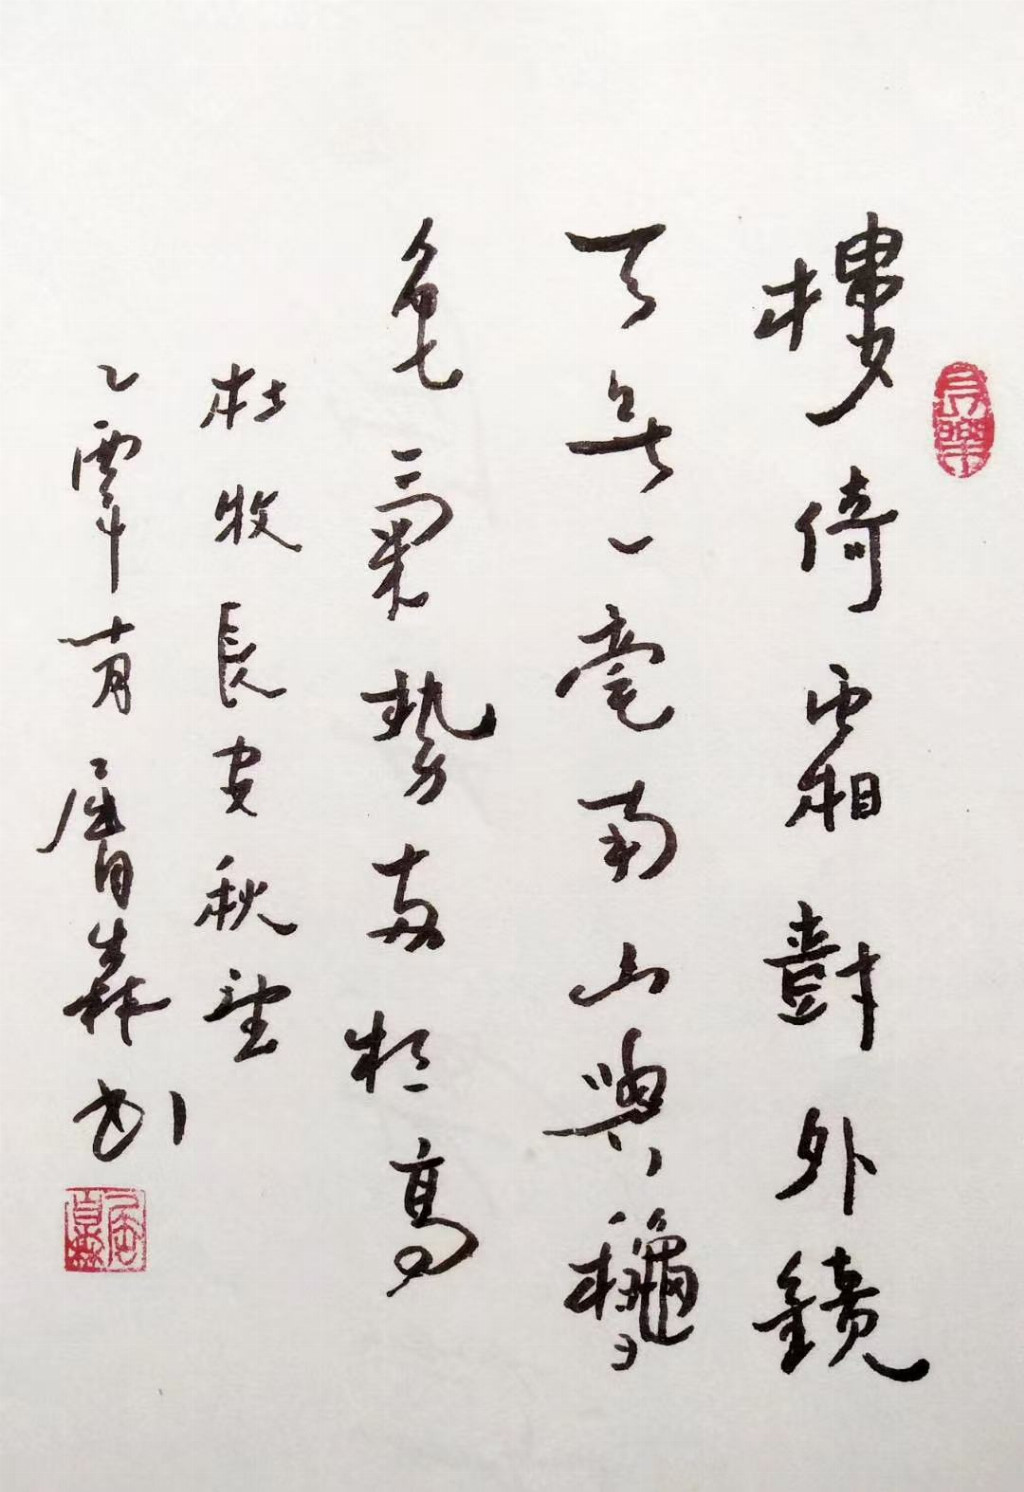 樓倚霜尌外鏡
天無一毫南山與龝
色氣勢兩相高
杜牧長安秋望
乙 月 森書